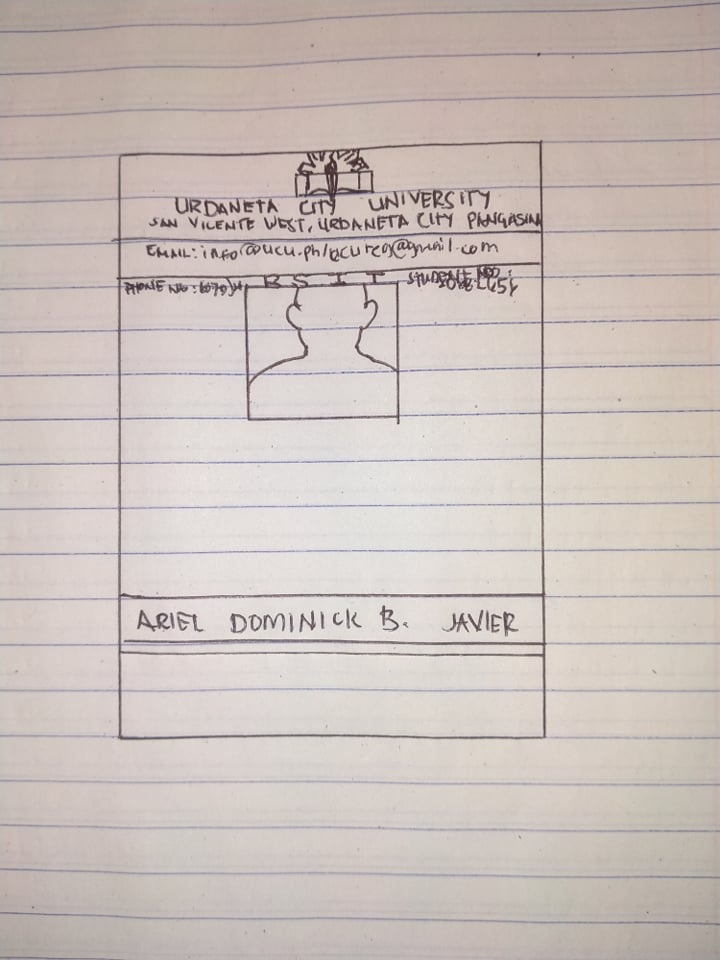 URDANETA CITY UNIVERSITY
SAN VICENTE WEST, URDANETA CITY PANGASINAN
EMAIL: info@ucu.ph/ucureg@gmail.com
PHONE NO: BSIT STUDENT NO:
ARIEL DOMINICK B. JAVIER